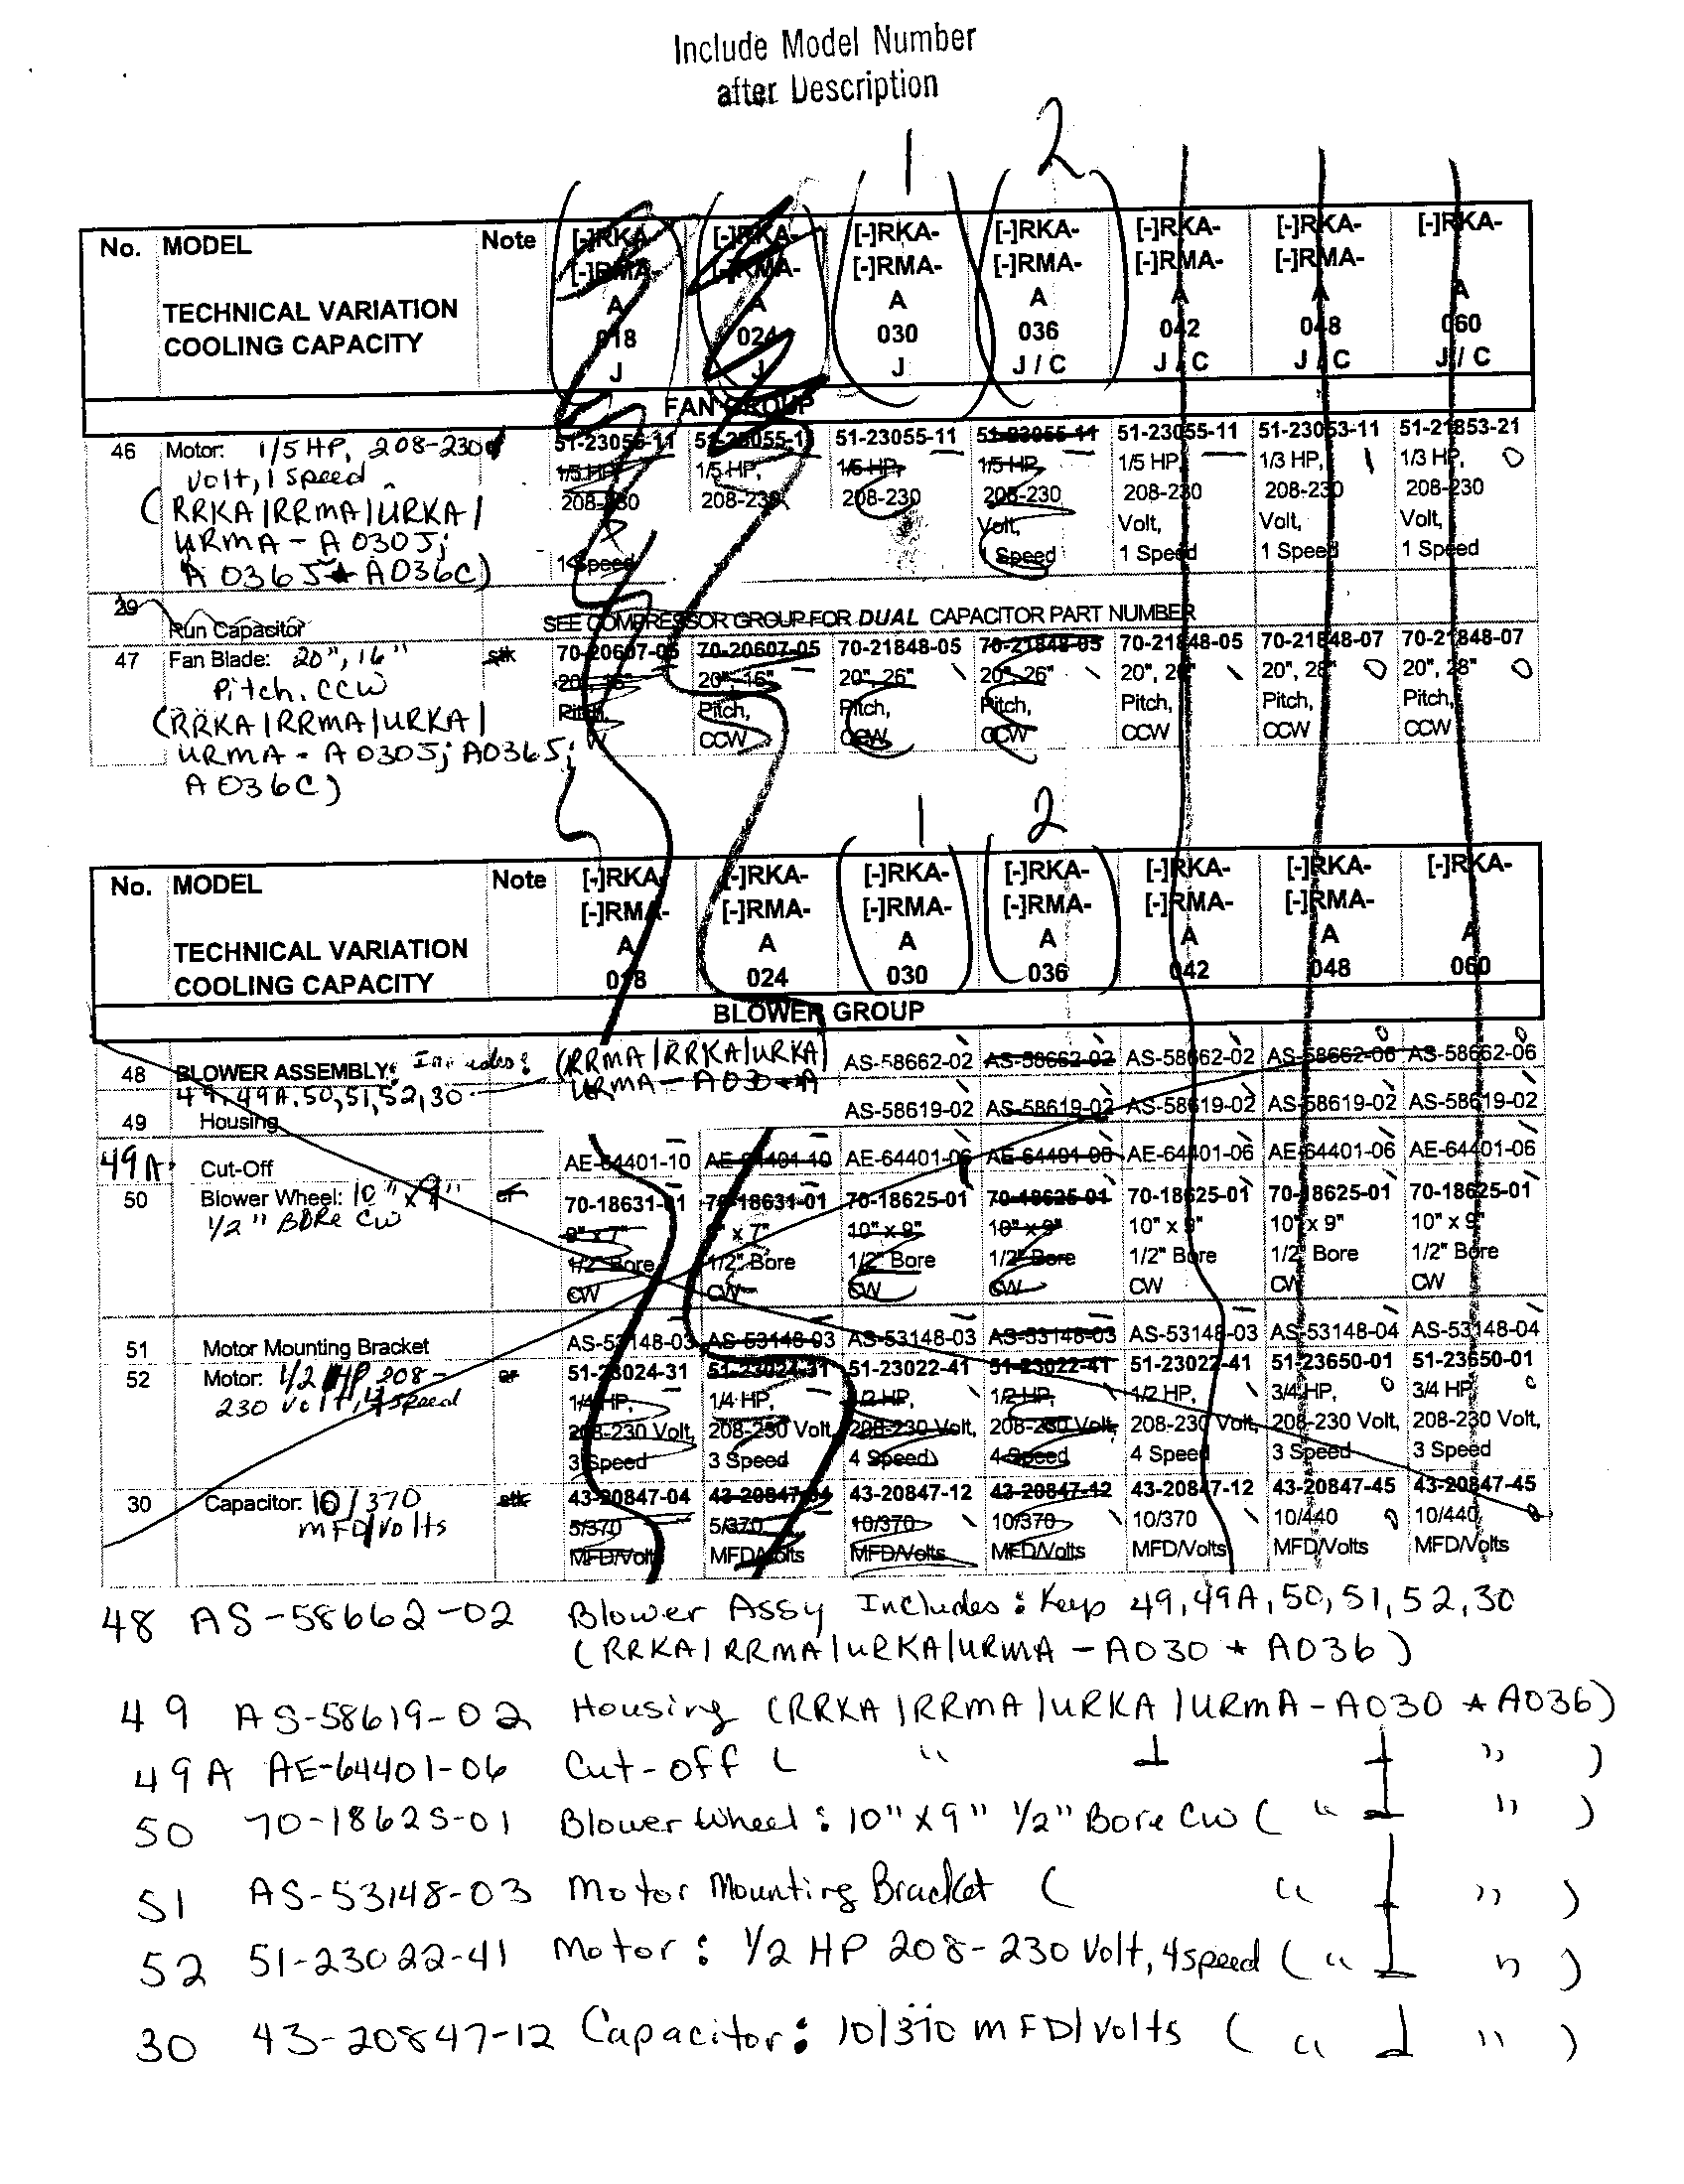 Include Model Number
after Description
1 2
No. MODEL Note [-]RKA- [-]RKA- [-]RKA- [-]RKA- [-]RKA- [-]RKA- [-]RKA-
[-]RMA- [-]RMA- [-]RMA- [-]RMA- [-]RMA- [-]RMA-
TECHNICAL VARIATION A A A A A A A
COOLING CAPACITY 018 024 030 036 042 048 060
J J J J / C J / C J / C J / C
FAN GROUP
46 Motor: 1/5 HP, 208-230 51-23055-11 51-23055-11 51-23055-11 51-23055-11 51-23055-11 51-23053-11 51-21853-21
volt, 1 speed 1/5 HP, 1/5 HP, 1/5 HP, 1/5 HP, 1/5 HP, 1/3 HP, 1/3 HP,
(RRKA/RRMA/URKA/ 208-230 208-230 208-230 208-230 208-230 208-230 208-230
URMA - A030J; Volt, Volt, Volt, Volt,
A036J & A036C) 1 Speed 1 Speed 1 Speed 1 Speed 1 Speed
29 Run Capacitor SEE COMPRESSOR GROUP FOR DUAL CAPACITOR PART NUMBER
47 Fan Blade: 20", 16" stk 70-20607-05 70-20607-05 70-21848-05 70-21848-05 70-21848-05 70-21848-07 70-21848-07
Pitch. CCW 20", 16" 20", 16" 20", 26" 20", 26" 20", 26" 20", 28" 20", 28"
(RRKA/RRMA/URKA/ Pitch, Pitch, Pitch, Pitch, Pitch, Pitch, Pitch,
URMA - A030J; A036J; CCW CCW CCW CCW CCW CCW
A036C)
1 2
No. MODEL Note [-]RKA- [-]RKA- [-]RKA- [-]RKA- [-]RKA- [-]RKA- [-]RKA-
[-]RMA- [-]RMA- [-]RMA- [-]RMA- [-]RMA- [-]RMA-
TECHNICAL VARIATION A A A A A A A
COOLING CAPACITY 018 024 030 036 042 048 060
BLOWER GROUP
48 BLOWER ASSEMBLY: Includes: (RRMA/RRKA/URKA/ AS-58662-02 AS-58662-02 AS-58662-02 AS-58662-06 AS-58662-06
49, 49A, 50, 51, 52, 30 URMA - A030 & A
49 Housing AS-58619-02 AS-58619-02 AS-58619-02 AS-58619-02 AS-58619-02
49A Cut-Off AE-64401-10 AE-64401-10 AE-64401-06 AE-64401-06 AE-64401-06 AE-64401-06 AE-64401-06
50 Blower Wheel: 10" x 9" 70-18631-01 70-18631-01 70-18625-01 70-18625-01 70-18625-01 70-18625-01 70-18625-01
1/2" BORE CW 9" x 7" 9" x 7", 10" x 9" 10" x 9" 10" x 9" 10" x 9" 10" x 9"
1/2" Bore 1/2" Bore 1/2" Bore 1/2" Bore 1/2" Bore 1/2" Bore 1/2" Bore
CW CW CW CW CW CW CW
51 Motor Mounting Bracket AS-53148-03 AS-53148-03 AS-53148-03 AS-53148-03 AS-53148-03 AS-53148-04 AS-53148-04
52 Motor: 1/2 HP 208- 51-23024-31 51-23024-31 51-23022-41 51-23022-41 51-23022-41 51-23650-01 51-23650-01
230 volt, 4 speed 1/4 HP, 1/4 HP, 1/2 HP, 1/2 HP, 1/2 HP, 3/4 HP, 3/4 HP,
208-230 Volt, 208-230 Volt, 208-230 Volt, 208-230 Volt, 208-230 Volt, 208-230 Volt, 208-230 Volt,
3 Speed 3 Speed 4 Speed 4 Speed 4 Speed 3 Speed 3 Speed
30 Capacitor: 10/370 stk 43-20847-04 43-20847-04 43-20847-12 43-20847-12 43-20847-12 43-20847-45 43-20847-45
MFD/Volts 5/370 5/370 10/370 10/370 10/370 10/440 10/440
MFD/Volts MFD/Volts MFD/Volts MFD/Volts MFD/Volts MFD/Volts MFD/Volts
48 AS-58662-02 Blower Assy Includes: Keys 49, 49A, 50, 51, 52, 30
(RRKA/RRMA/URKA/URMA - A030 & A036)
49 AS-58619-02 Housing (RRKA/RRMA/URKA/URMA - A030 & A036)
49A AE-64401-06 Cut-off ( " " )
50 70-18625-01 Blower Wheel: 10" x 9" 1/2" Bore CW ( " " )
51 AS-53148-03 Motor Mounting Bracket ( " " )
52 51-23022-41 Motor: 1/2 HP 208-230 Volt, 4 speed ( " " )
30 43-20847-12 Capacitor: 10/370 MFD/Volts ( " " )